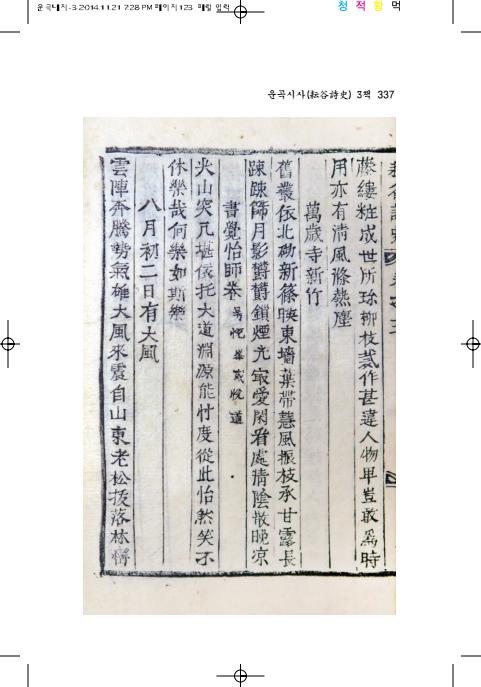 운곡내지-3 2014.11.21 7:28 PM 페이지123
청 적 황 먹
운곡시사(耘谷詩史) 3책 337
藤縷粧成世所珍柳枝裁作甚違人物卑豈敢爲時
用亦有淸風滌熱塵
萬歲寺新竹
舊叢依北砌新篠映東墻葉帶慧風振枝承甘露長
踈踈篩月影欝欝鎖煙光最愛閑看處情陰散晩凉
書覺怡師卷
尖山突兀堪依托大道淵源能忖度從此怡然笑不
休樂哉何樂如斯樂
八月初二日有大風
雲陣奔騰勢氣雄大風來震自山東老松拔落林